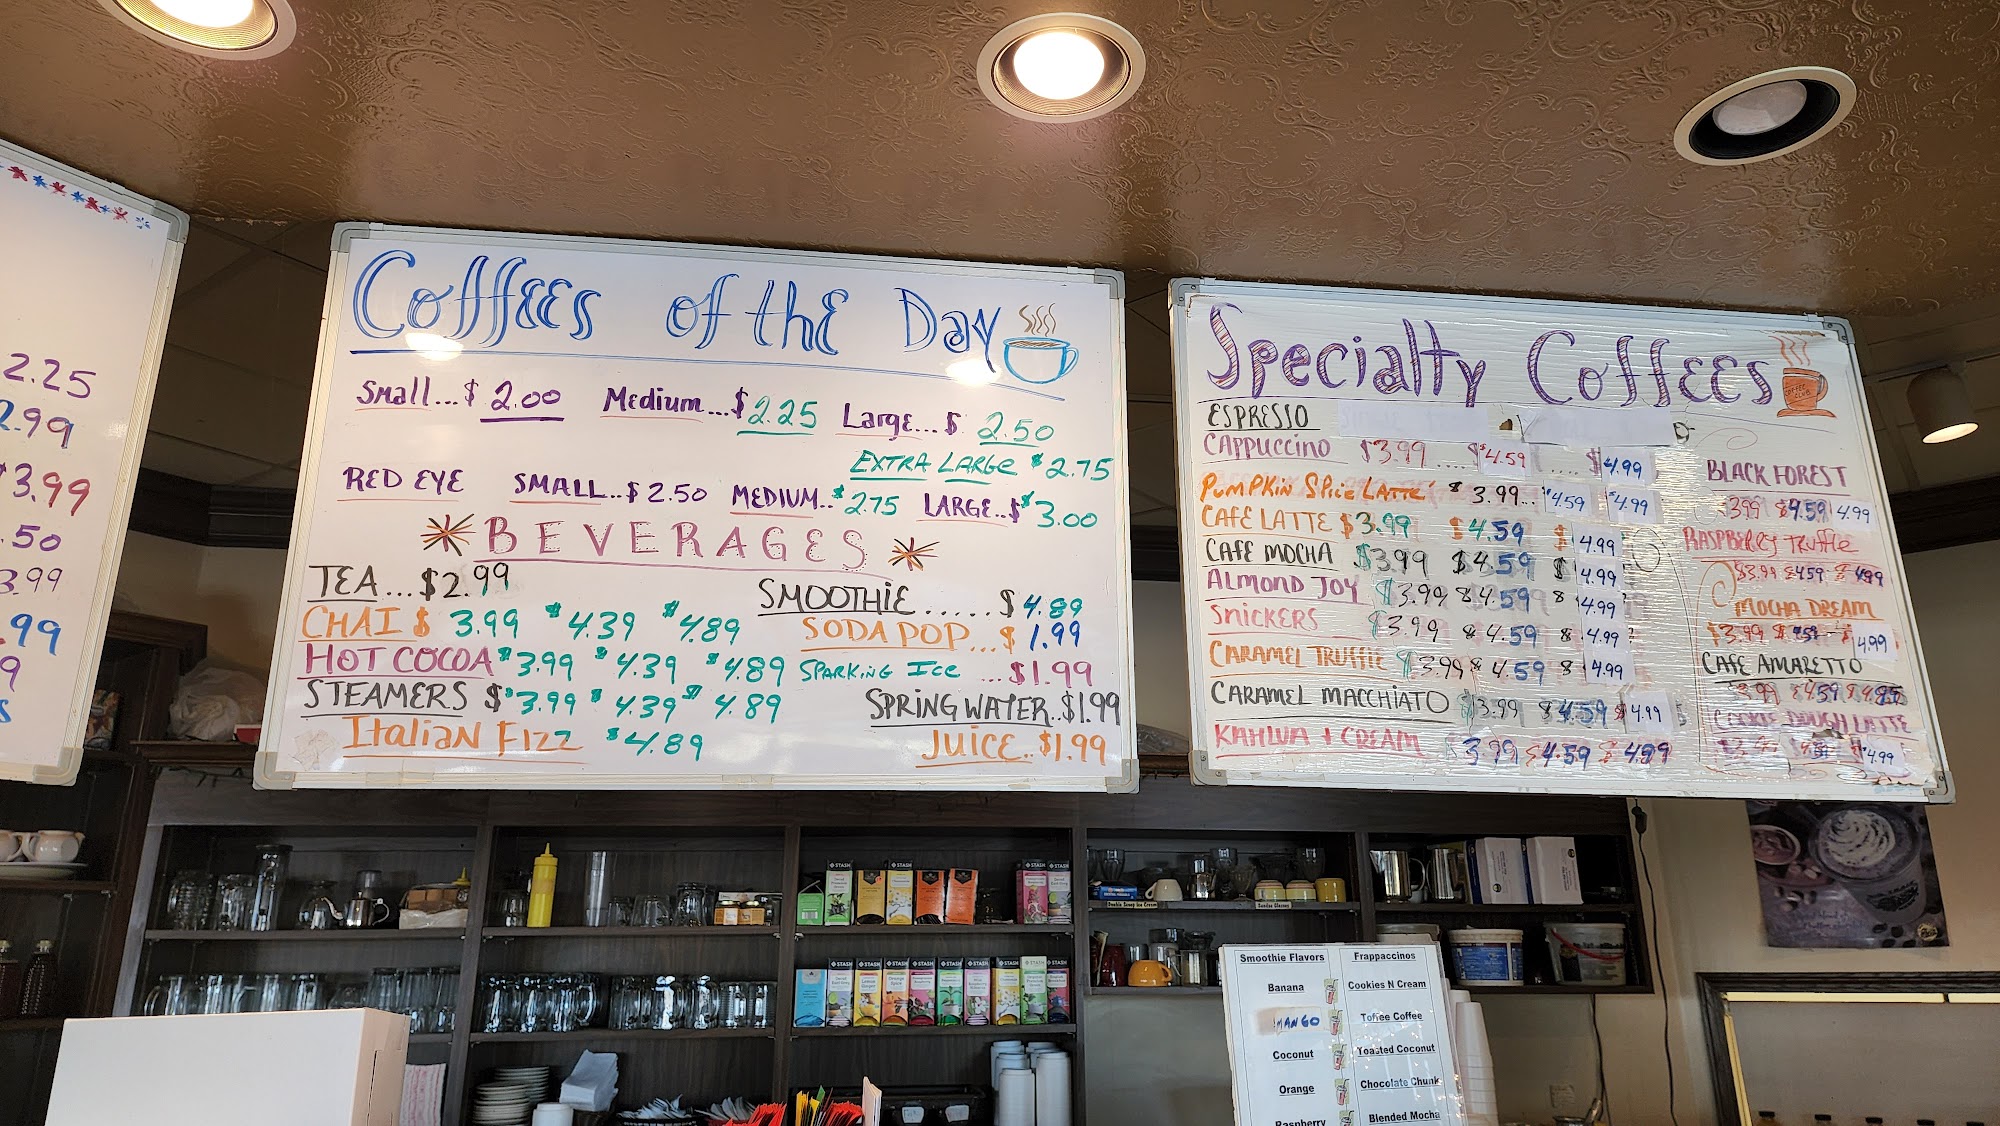 2.25
2.99
3.99
.50
3.99
.99
9
Coffees of the Day
Small...$ 2.00 Medium...$2.25 Large...$ 2.50
EXTRA LARGE $2.75
RED EYE SMALL..$2.50 MEDIUM..$2.75 LARGE..$3.00
BEVERAGES
TEA...$2.99
CHAI $ 3.99 $4.39 $4.89
HOT COCOA $3.99 $4.39 $4.89
STEAMERS $3.99 $4.39 $4.89
Italian Fizz $4.89
SMOOTHIE.....$4.89
SODA POP...$1.99
SPARKING ICE ...$1.99
SPRING WATER..$1.99
JUICE..$1.99
Specialty Coffees
COFFEE CLUB
ESPRESSO
CAPPUCCINO $3.99....$4.59....$4.99
PUMPKIN SPICE LATTE $3.99...$4.59 $4.99
CAFE LATTE $3.99 $4.59 $4.99
CAFE MOCHA $3.99 $4.59 $4.99
ALMOND JOY $3.99 $4.59 $4.99
SNICKERS $3.99 $4.59 $4.99
CARAMEL TRUFFLE $3.99 $4.59 $4.99
CARAMEL MACCHIATO $3.99 $4.59 $4.99
KAHLUA + CREAM $3.99 $4.59 $4.99
BLACK FOREST
$3.99 $4.59 4.99
RASPBERRY TRUFFLE
$3.99 $4.59 $4.99
MOCHA DREAM
$3.99 $4.59 4.99
CAFE AMARETTO
3.99 $4.59
COOKIE DOUGH LATTE
4.99
STASH
STASH
STASH
STASH
STASH
STASH
STASH
STASH
STASH
STASH
STASH
STASH
Double Scoop Ice Cream
Sundae Glasses
Smoothie Flavors
Banana
MANGO
Coconut
Orange
Raspberry
Frappaccinos
Cookies N Cream
Toffee Coffee
Toasted Coconut
Chocolate Chunk
Blended Mocha